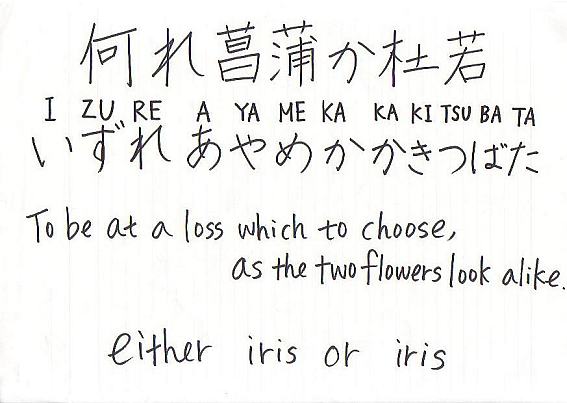 何れ菖蒲か杜若
I ZU RE A YA ME KA KA KI TSU BA TA
いずれあやめかかきつばた
To be at a loss which to choose,
as the two flowers look alike.
either iris or iris